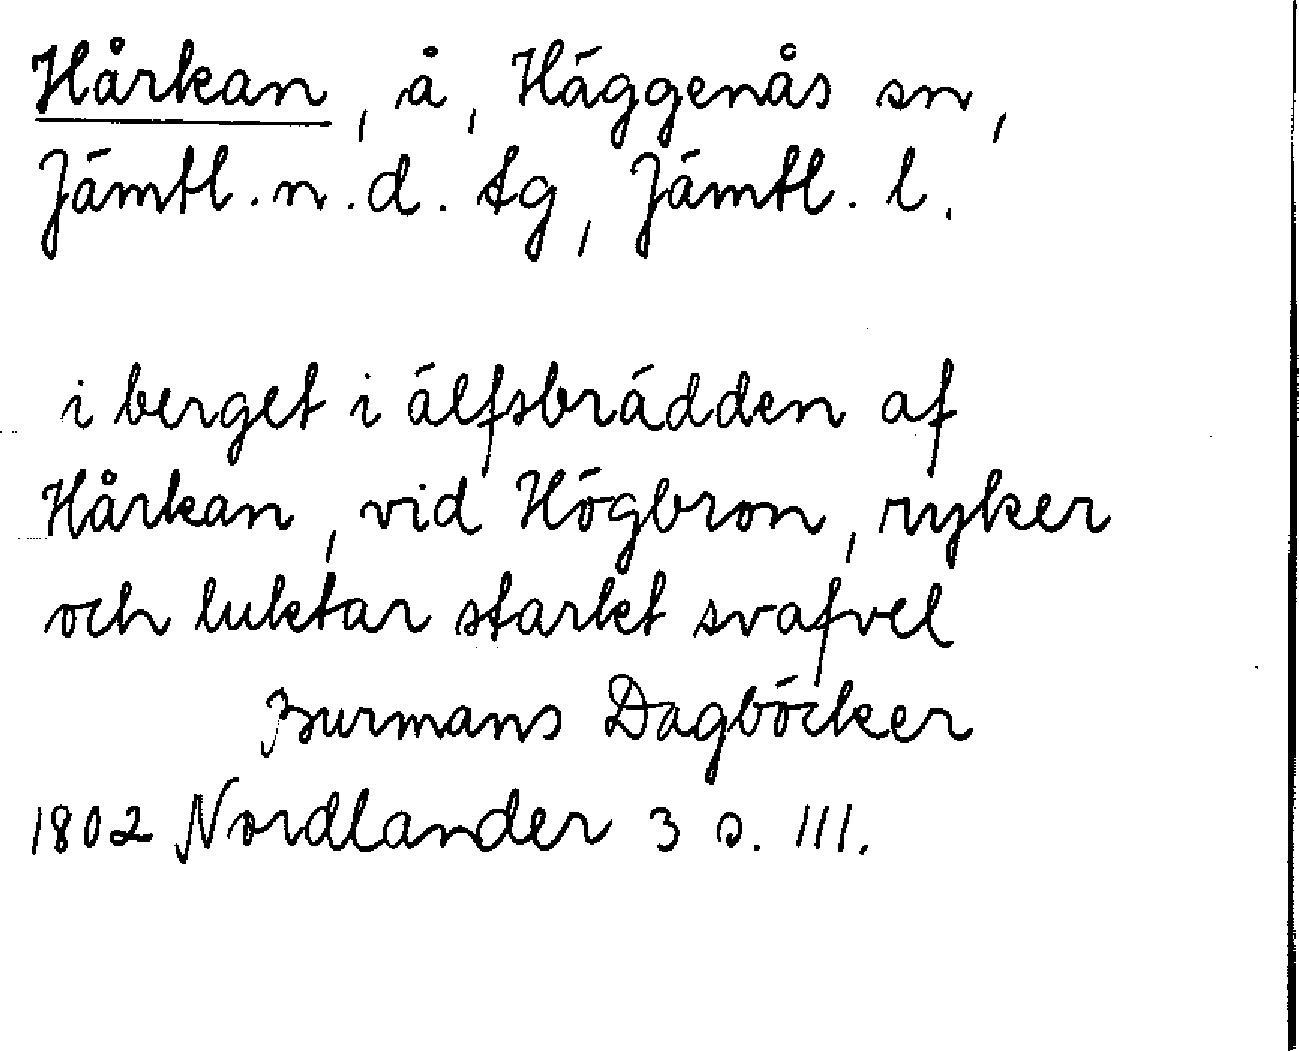 Hårkan, å, Häggenås sn,
Jämtl. n. d. tg, Jämtl. l.
i berget i älfsbrädden af
Hårkan, vid Högbron, ryker
och luktar starkt svafvel
Burmans Dagböcker
1802 Nordlander 3 s. 111.